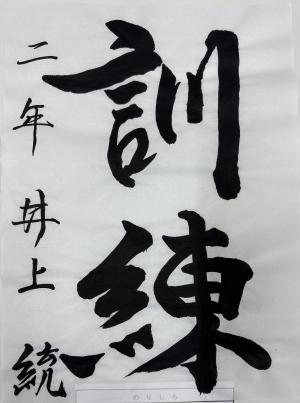 訓練
二年 井上 統
のりしろ